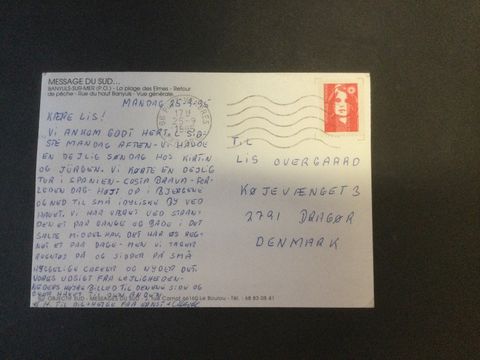 MESSAGE DU SUD...
BANYULS-SUR-MER (P.O.) - La plage des Elmes - Retour
de pêche - Rue du haut Banyuls - Vue générale.
MANDAG 25-9-95
KÆRE LIS!
VI ANKOM GODT HERTIL SID-
STE MANDAG AFTEN - VI HAVDE
EN DEJLIG SØNDAG HOS KIRTIN
OG JÜRGEN. VI KØRTE EN DEJLIG
TUR I SPANIEN - COSTA BRAVA - FOR-
LEDEN DAG - HØJT OP I BJERGENE
OG NED TIL SMÅ IDYLISKE BY VED
HAVET. VI HAR VÆRET VED STRAN-
DEN ET PAR GANGE OG BADE I DET
SALTE MIDDELHAV. DET HAR OS REG-
NET ET PAR DAGE - MEN VI TAGER
RUNDT OG SIDDER PÅ SMÅ
HYGGELIGE CAFEER OG NYDER DET
VORES UDSIGT FRA LEJLIGHEDEN
NEDERS HØJRE BILLED TIL DENNE SIDE OG
OVER HAVET TIL
17H
25-9
1995
TIL
LIS OVERGAARD
KØJEVÆNGET 3
2791 DRAGØR
DENMARK
OBJECTIF SUD - MESSAGES DU SUD - Rue Carnot 66160 Le Boulou - Tél. : 68 83 08 41